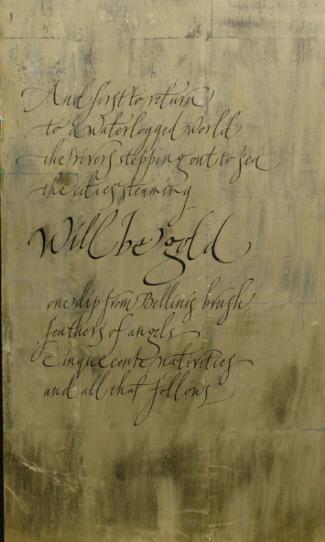 And first to return
to a waterlogged world
the rivers stepping out to sea
the cities steaming
Will be gold
one dip from Bellinis brush
feathers of angels
Cinquecento nativities
and all that follows